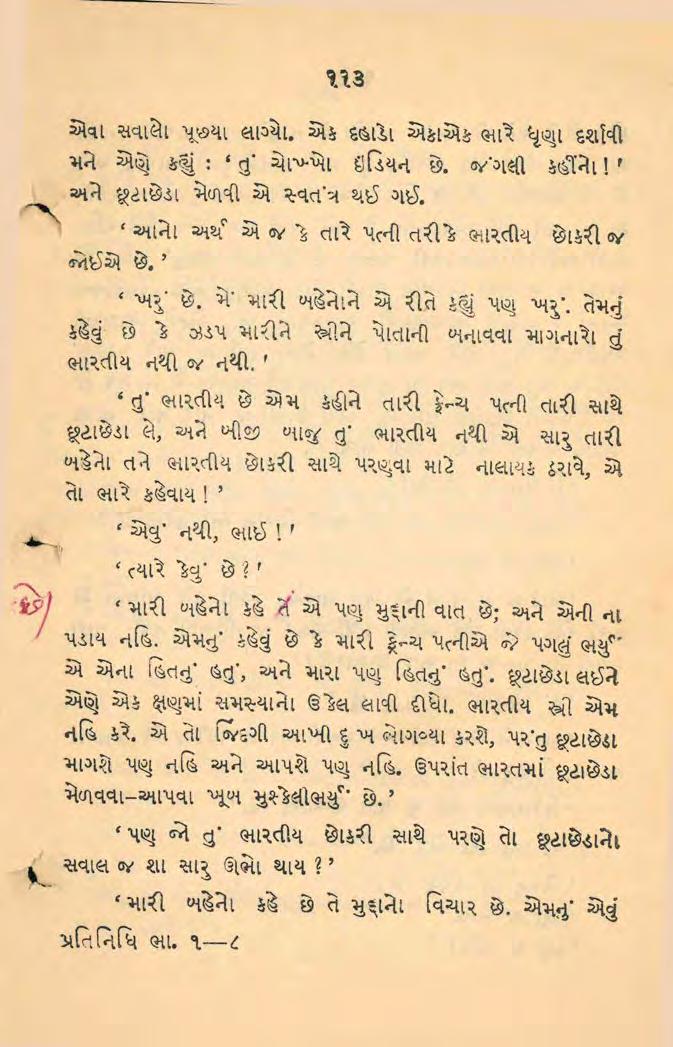 ૧૧૩
એવા સવાલો પૂછયા લાગ્યો. એક દહાડો એકાએક ભારે ઘૃણા દર્શાવી
મને એણે કહ્યું : ‘તું ચોખ્ખો ઇંડિયન છે. જંગલી કહીંનો !’
અને છૂટાછેડા મેળવી એ સ્વતંત્ર થઈ ગઈ.
‘આનો અર્થ એ જ કે તારે પત્ની તરીકે ભારતીય છોકરી જ
જોઈએ છે.’
‘ખરું છે. મેં મારી બહેનોને એ રીતે કહ્યું પણ ખરું. તેમનું
કહેવું છે કે ઝડપ મારીને સ્ત્રીને પોતાની બનાવવા માગનારો તું
ભારતીય નથી જ નથી.’
‘તું ભારતીય છે એમ કહીને તારી ફ્રેન્ચ પત્ની તારી સાથે
છૂટાછેડા લે, અને બીજી બાજુ તું ભારતીય નથી એ સારુ તારી
બહેનો તને ભારતીય છોકરી સાથે પરણવા માટે નાલાયક ઠરાવે, એ
તો ભારે કહેવાય !’
‘એવું નથી, ભાઈ !’
‘ત્યારે કેવું છે ?’
છે/ ‘મારી બહેનો કહે તે એ પણ મુદ્દાની વાત છે; અને એની ના
પડાય નહિ. એમનું કહેવું છે કે મારી ફ્રેન્ચ પત્નીએ જે પગલું ભર્યું
એ એના હિતનું હતું, અને મારા પણ હિતનું હતું. છૂટાછેડા લઈને
એણે એક ક્ષણમાં સમસ્યાનો ઉકેલ લાવી દીધો. ભારતીય સ્ત્રી એમ
નહિ કરે. એ તો જિંદગી આખી દુ ખ ભોગવ્યા કરશે, પરંતુ છૂટાછેડા
માગશે પણ નહિ અને આપશે પણ નહિ. ઉપરાંત ભારતમાં છૂટાછેડા
મેળવવા–આપવા ખૂબ મુશ્કેલીભર્યું છે.’
‘પણ જો તું ભારતીય છોકરી સાથે પરણે તો છૂટાછેડાનો
સવાલ જ શા સારુ ઊભો થાય ?’
‘મારી બહેનો કહે છે તે મુદ્દાનો વિચાર છે. એમનું એવું
પ્રતિનિધિ ભા. ૧—૮